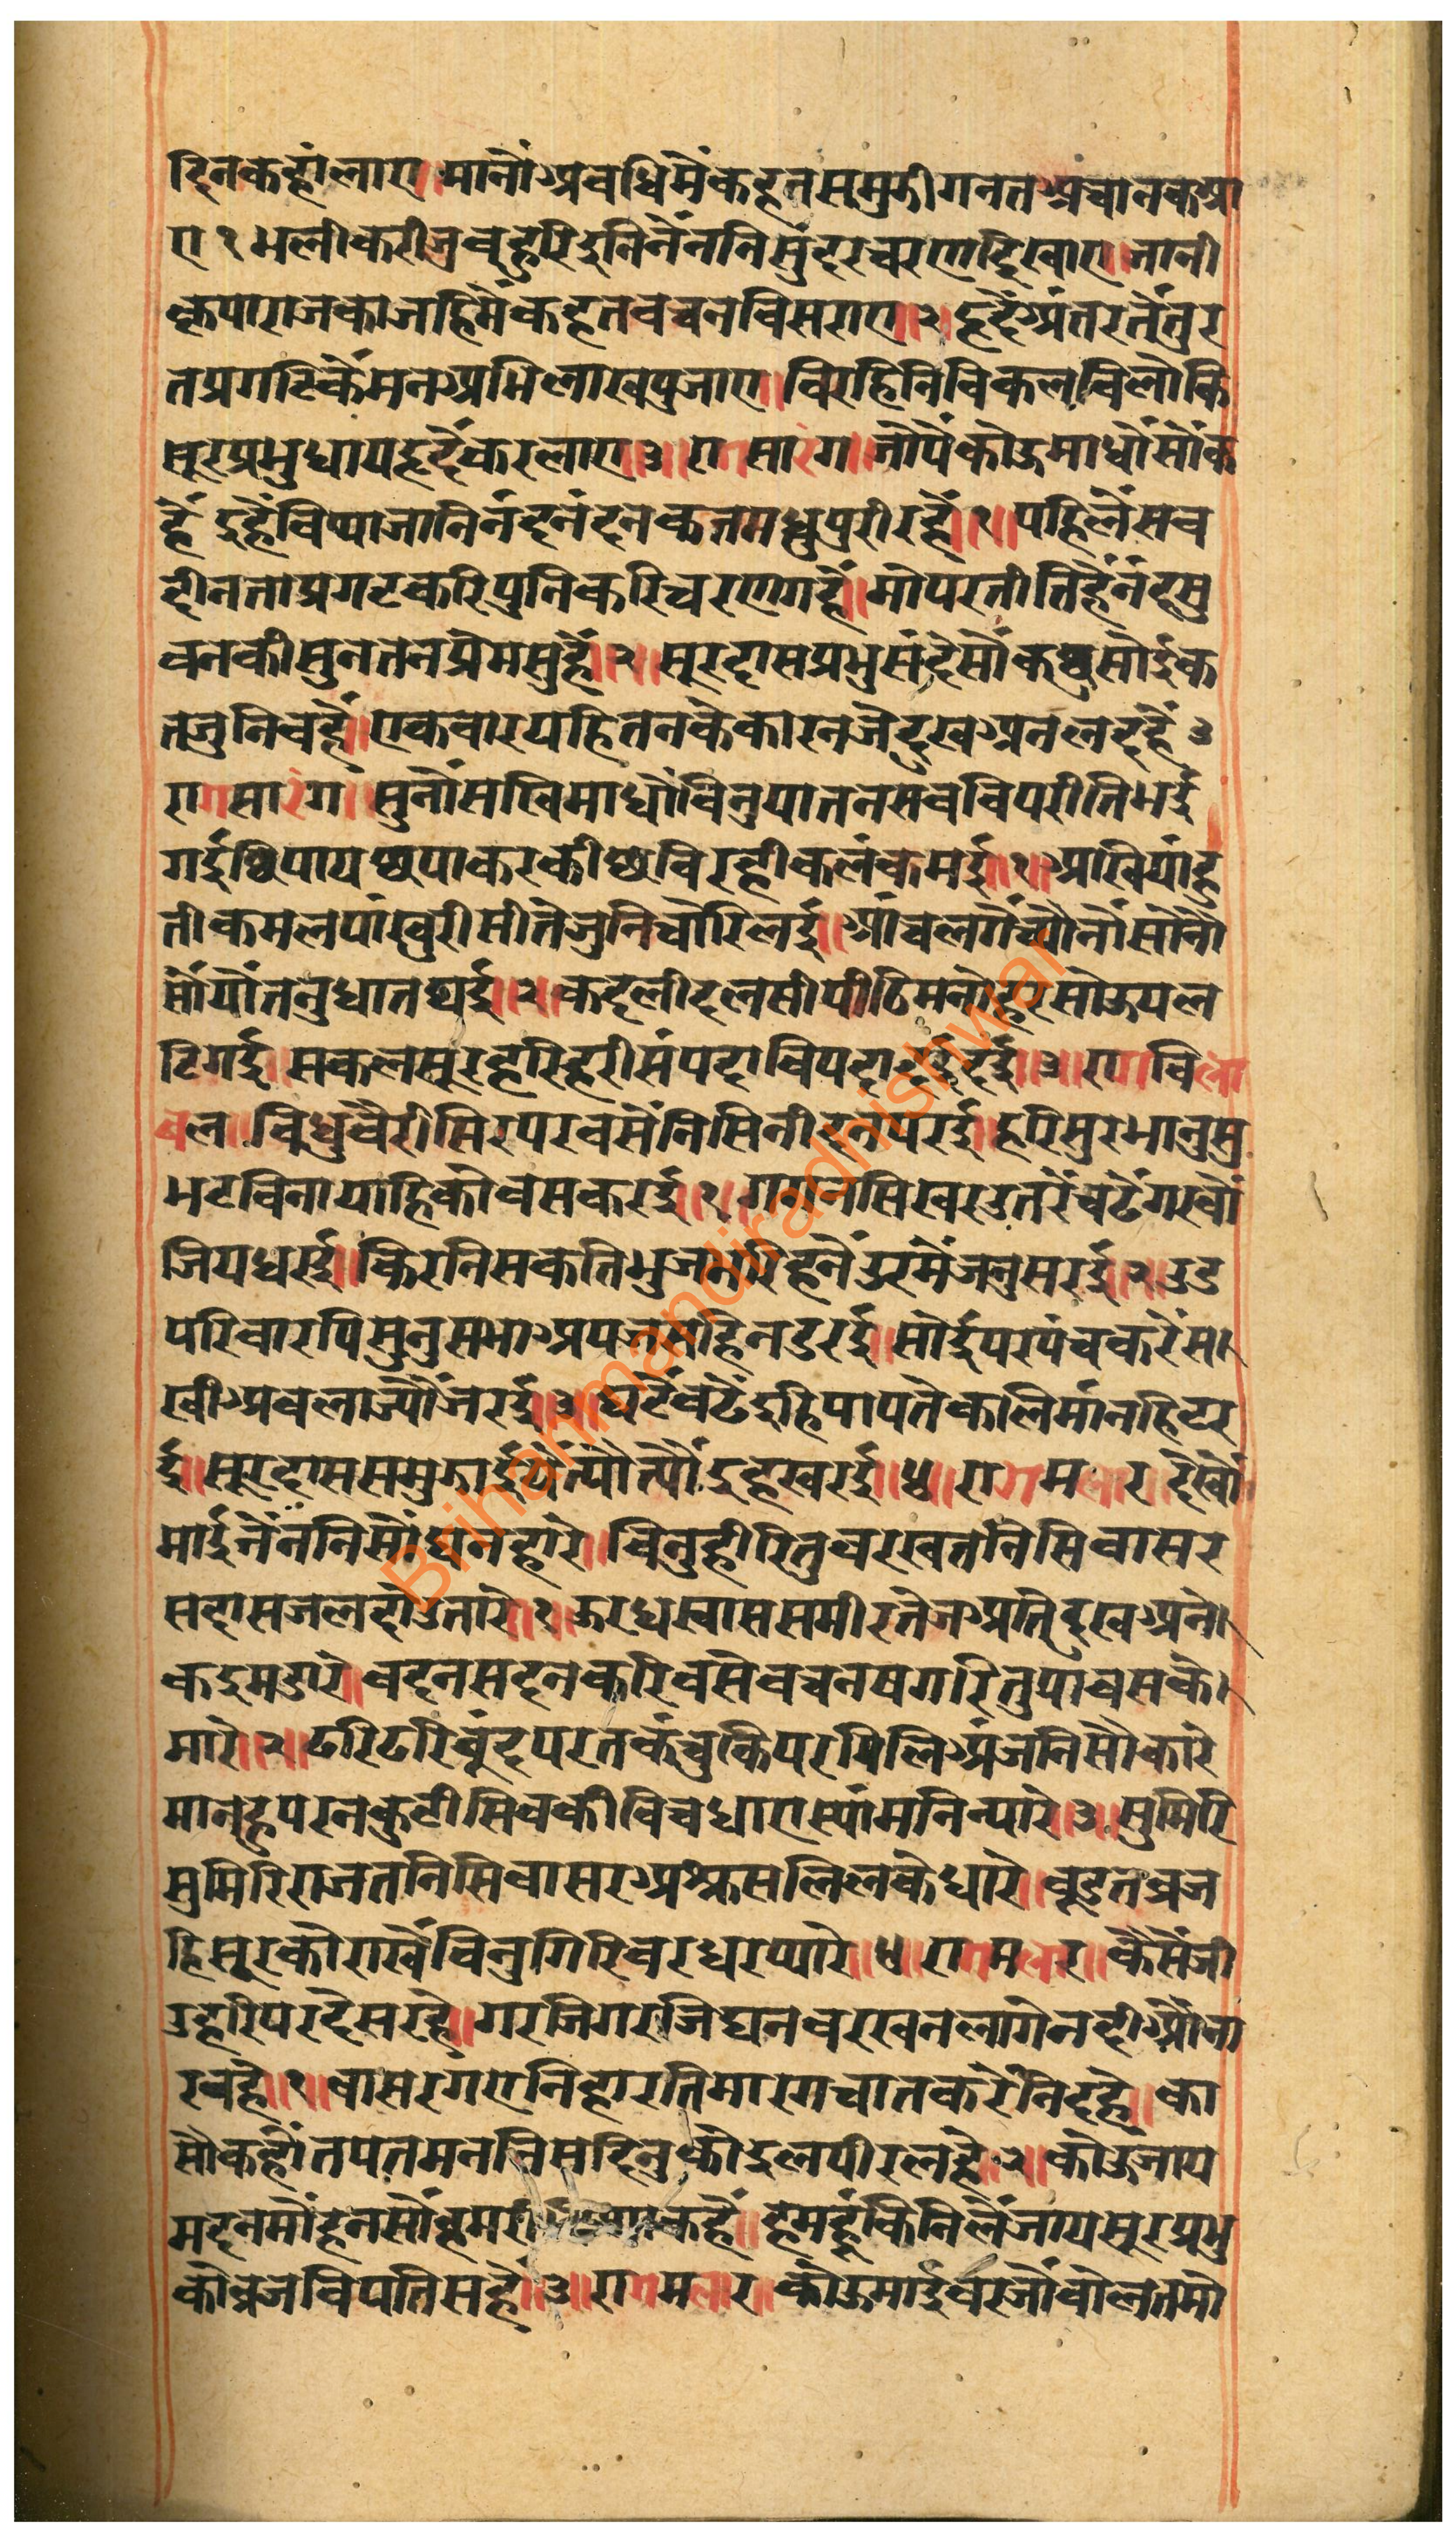 दिनकहांलाए॥मानौंअवधिमैंकहतसमुझीगनतअचानकआ
ए१भलीकरीअबहरिदुनिनैंननिसुंदरचरणदिखाए॥जानी
कृपाराजकाजहिमैंकहतबचनबिसराए॥२॥हृदैंअंतरतैंतुर
तप्रगटिकैंमनअभिलाखपुजाए॥विरहिनिविकलविलोकि
सूरप्रभुधायहृदैंकरलाए॥३॥रागसारंग॥जौपैंकोऊमाधौंसौंक
हैं दुहैंबिप्याजानिनंदनंदनकतमधुपुरीरहैं॥१॥पहिलैंसब
दीनताप्रगटकरिपुनिकरिचरणगहैं॥मोपरतीतिहैंनंदसु
वनकीसुनतनप्रेमसुहैं॥२॥सूरदासप्रभुसंदेसौंकछुसोईक
तजुनिबहैं॥एकबारयहितनकेकारनजेदुखअनलदहैं३
रागसारंग॥सुनौंसखिमाधौंबिनुयातनसबबिपरीतिभई
गईछिपायछपाकरकीछबिरहीकलंकमई॥१॥आखियांहु
तीकमलपांखुरीसीतेजुनिचोरिलई॥आंचलगैंच्यौनौंसोनौ
सौंयौंतनुधातधई॥२॥कदलीदलसीपीठिमनोहरसोऊपल
टिगई॥सकलसूरहरिहरीसंपदाबिपदादईदई॥३॥रागबिला
बल॥बिधुबैरीसिरपरबसैंनिसिनींदनपरई॥हरिसुरभानुसु
भटबिनायाहिकोबसकरई॥१॥गगनसिखरउतरैंचढैंगरबौं
जियधरई॥किरनिसकतिभुजभरिहनैंउरमैंजनुसरई॥२॥उड
परिवारपिसुनुसभाअपजसहिनडरई॥सोईपरपंचकरैंस।
खीअबलाज्यौंजरई॥३॥घटैंबढैंदुहिपापतेकालिमानहिटर
ई॥सूरदाससमुझाईयैंत्यौत्यौंदुहखरई॥४॥रागमलार॥देखौं
माईनैंननिसौंघनहारे॥बिनुहीरितुबरखतनिसिबासर
सदासजलदोउतारे॥१॥ऊरधस्वाससमीरतेजअतिदुखअने।
कदुमडारे॥बदनसदनकरिबसेबचनषगरितुपावसके।
मारे॥२॥ढरिढरिबूंदपरतकंचुकिपरमिलिअंजनिसौकारे
मानहुपरनकुटीसिवकीविचधाराएस्यांमनिन्यारे॥३॥सुमिरि
सुमिरिराजतनिसिबासरअश्रुसलिलकेधारे॥बूडतब्रज
हिसूरकोराखैंबिनुगिरिवरधरप्यारे॥४॥रागमलार॥कैसैंजी
उहरिपरदेसरहे॥गरजिगरजिघनबरखनलागेनदीऔंना
रबहे॥१॥बासरगंएनिहारतिमारगचातकरैंनिदहे॥का
सौकहौंतपतमननिसदिनुकोदुलपीरलहे॥२॥कोऊजाय
मदनमौंहनसौंहमरी कहैं॥हमहूंकिनिलैंजायसूरप्रभु
कोब्रजबिपतिसहैं॥३॥रागमलार॥कोऊमाईबरजौंबोलतमो
Brihanmandiradhishwar